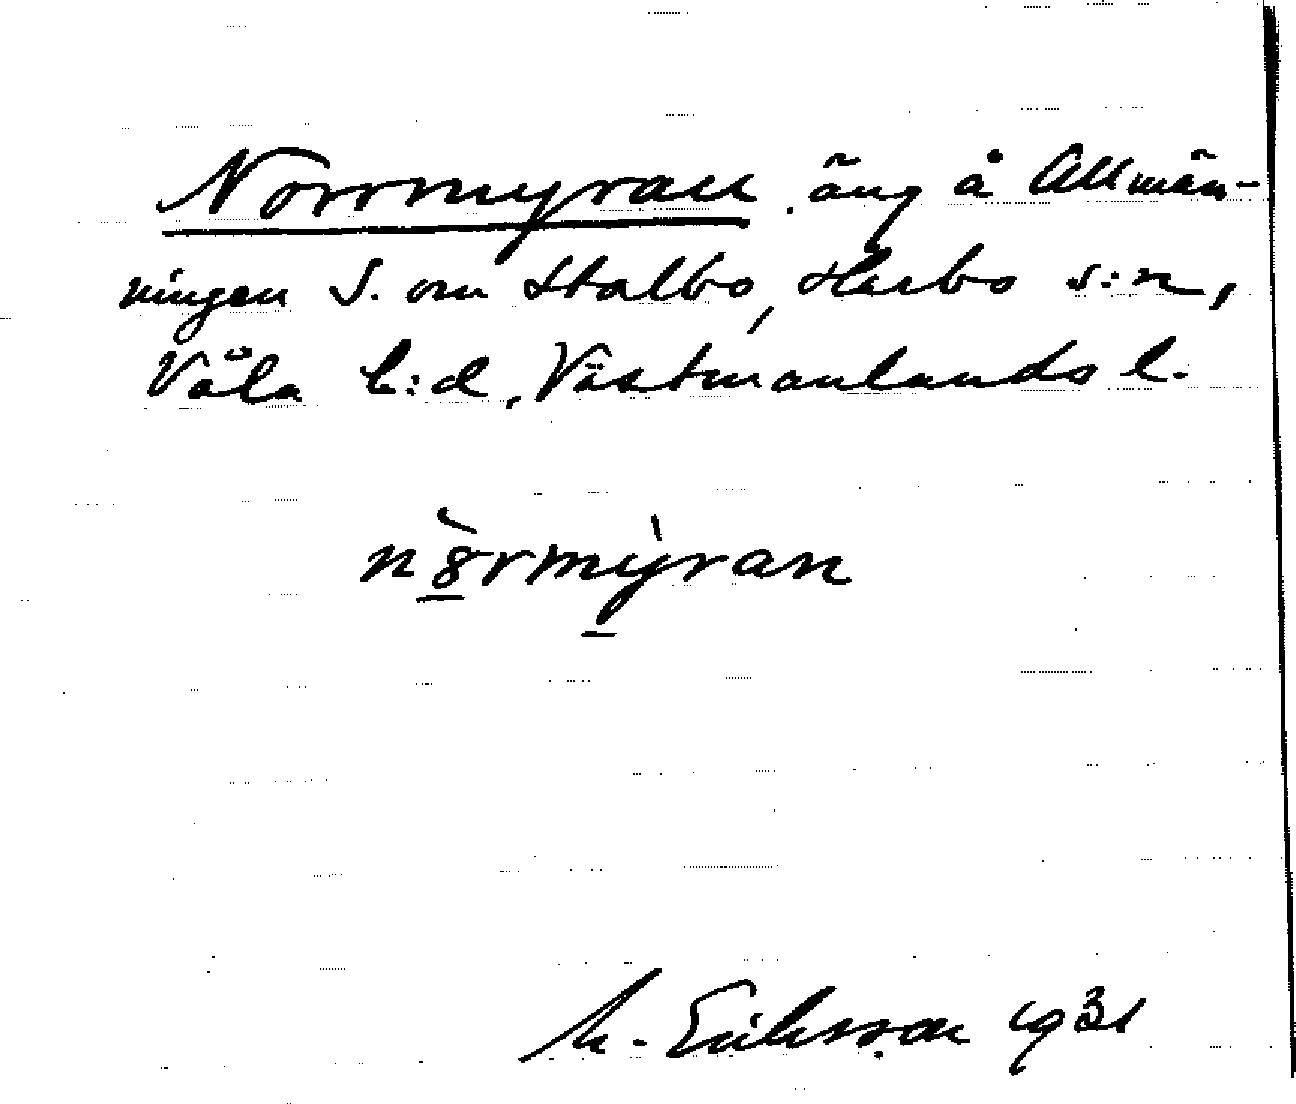 Norrmyran, äng å Allmän-
ningen S. om Stalbo, Harbo s:n,
Våla h:d, Västmanlands l.
nòrmýran
M. Eriksson 1931